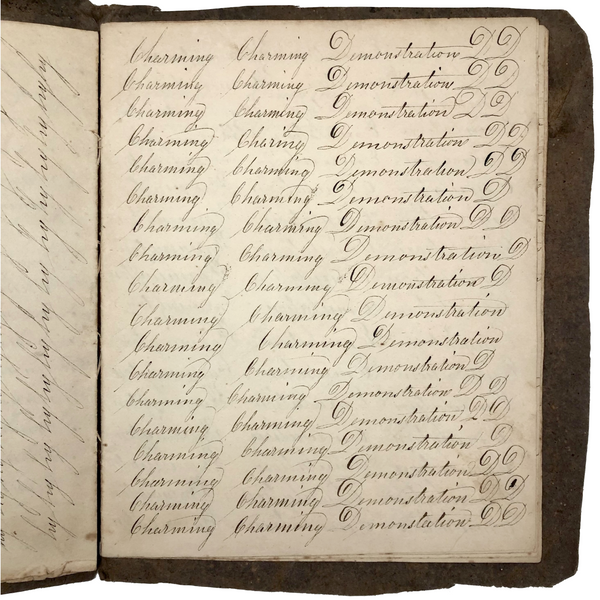 Charming Charming Demonstration D D
Charming Charming Demonstration D D
Charming Charming Demonstration D D
Charming Charing Demonstration D D
Charming Charming Demonstration D D
Charming Charming Demonstration D
Charming Charming Demonstration D D
Charming Charming Demonstration D
Charming Charming Demonstration D
Charming Charming Demonstration
Charming Charming Demonstration
Charming Charming Demonstration D
Charming Charming Demonstration D D
Charming Charming Demonstration D D
Charming Charming Demonstration D
Charming Charming Demonstration D D
Charming Charming Demonstration D D
Charming Charming Demonstation D D